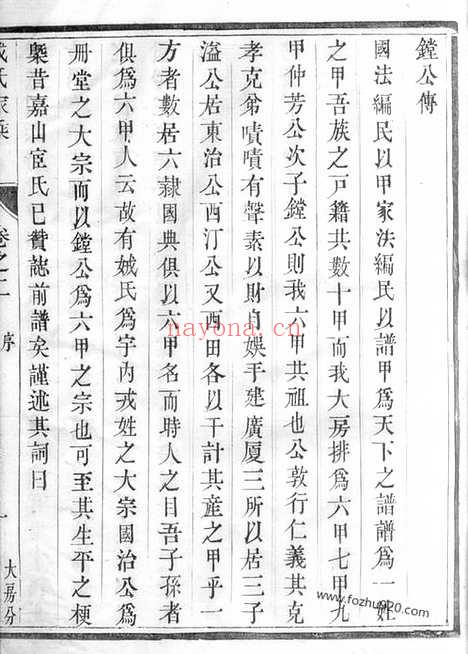 鏜公傳
國法編民以甲家法編民以譜甲爲天下之譜譜爲一姓
之甲吾族之戸籍共數十甲而我大房排爲六甲七甲九
甲仲芳公次子鏜公則我六甲共祖也公敦行仁義其克
孝克弟嘖嘖有聲素以財自娛手建廣厦三所以居三子
溢公居東治公西汀公又西田各以千計其產之甲乎一
方者數居六隷國典俱以六甲名而時人之目吾子孫者
俱爲六甲人云故有娀氏爲宇內戎姓之大宗國治公爲
冊堂之大宗而以鏜公爲六甲之宗也可至其生平之梗
槩昔嘉山宦氏已贊誌前譜矣謹述其詞曰
戎氏家乘
卷之二
序
一
大房分
nayona.cn
www.fozhu920.com